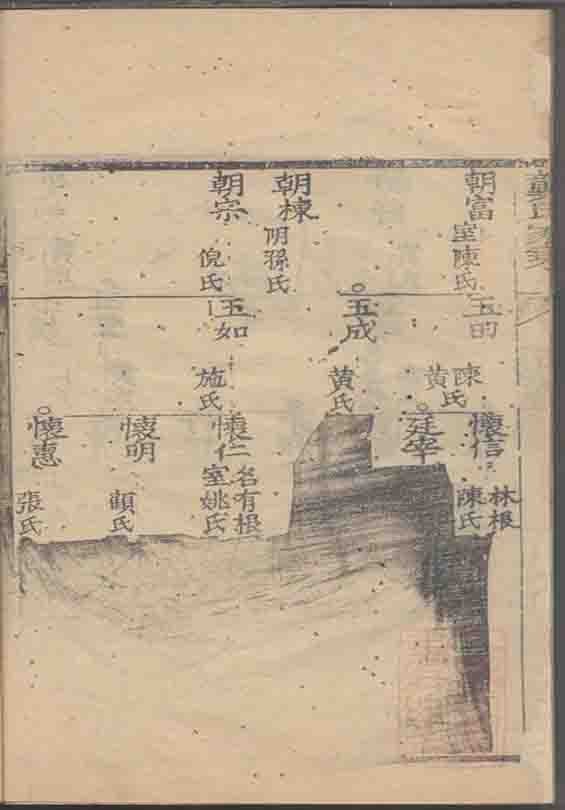 朝富
室陳氏
朝棟
朙孫氏
朝宗
倪氏
玉的
陳
黄氏
玉成
黄氏
玉如
施氏
懷信
林根
陳氏
廷宰
懷仁
名有根
室姚氏
懷明
顧氏
懷惠
張氏